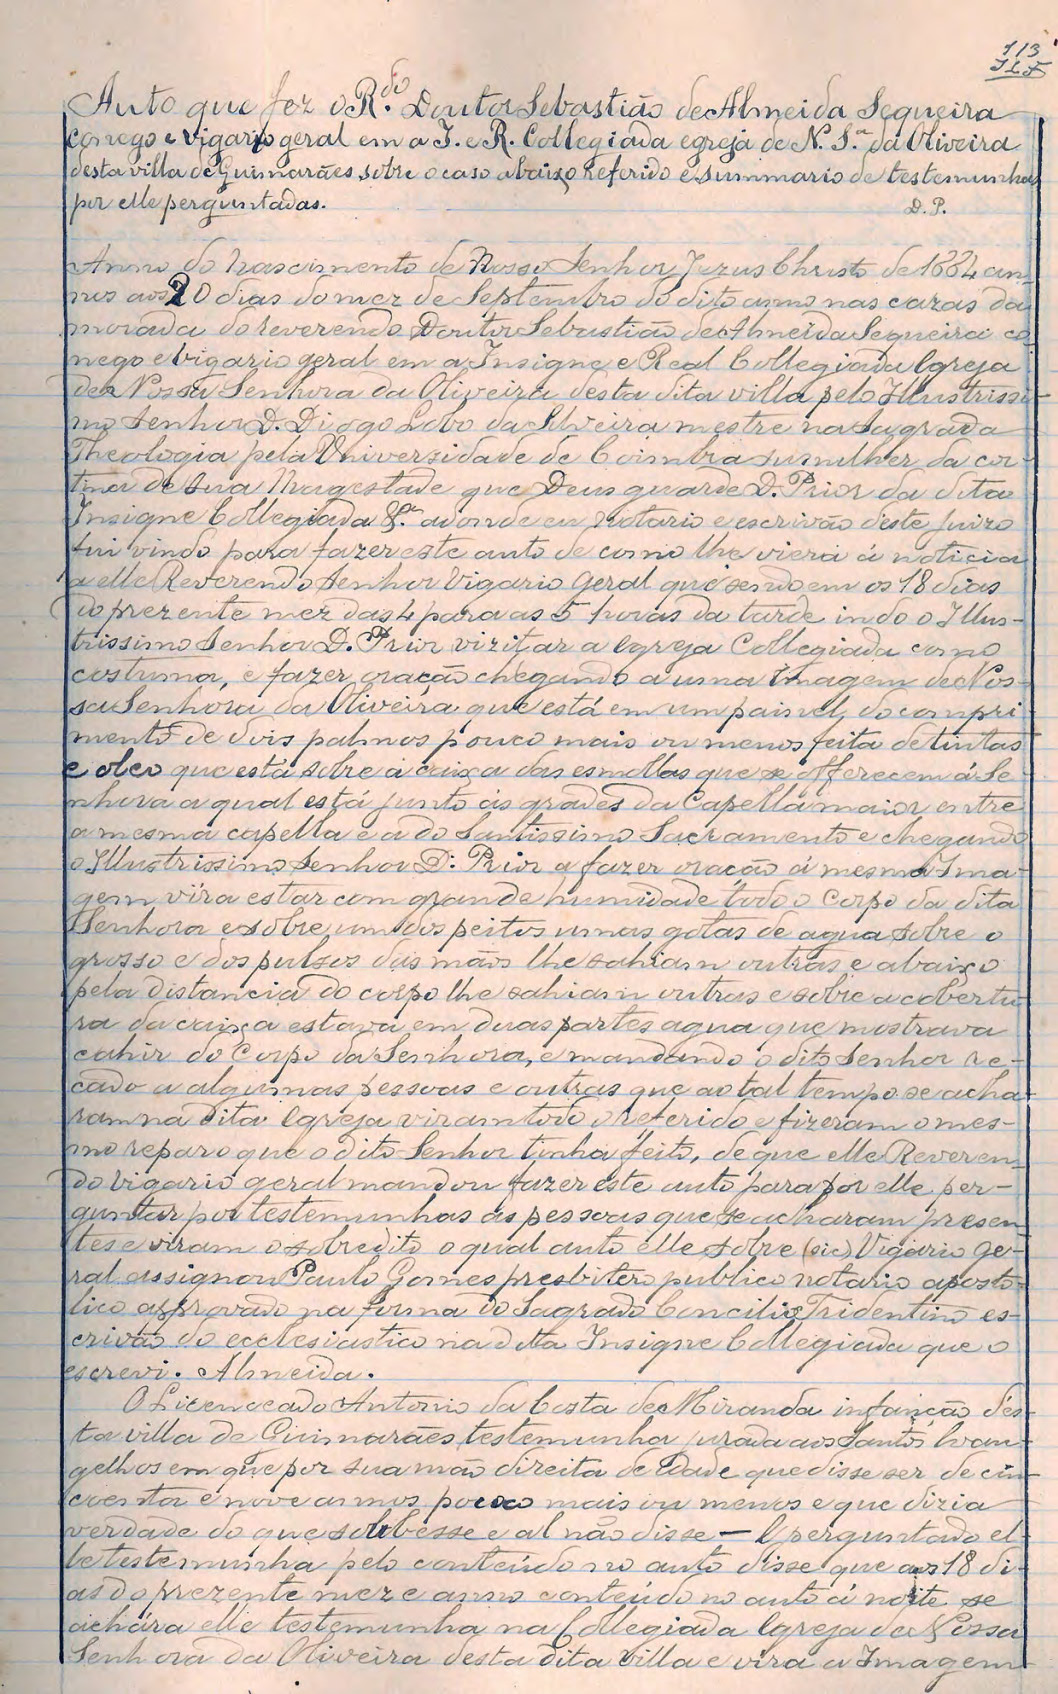 113
JLF
Auto que fez o R.do Doutor Sebastião de Almeida Sequeira
conego e vigario geral em a I. e R. Collegiada egreja de N. S.a da Oliveira
desta villa de Guimarães sobre o caso abaixo referido e summario de testemunhas
por elle perguntadas.
D. P.
Anno do Nascimento de Nosso Senhor Jezus Christo de 1884 an-
nos aos 20 dias do mez de Septembro do dito anno nas cazas da
morada do reverendo Doutor Sebastião de Almeida Sequeira co-
nego e vigario geral em a Insigne e Real Collegiada Egreja
de Nossa Senhora da Oliveira desta dita villa pelo Illustrissi-
mo Senhor D. Diogo Lobo da Silveira mestre na Sagrada
Theologia pela Universidade de Coimbra sumilher da cor-
tina de Sua Magestade que Deus guarde D. Prior da dita
Insigne Collegiada &.a adonde eu Notario e escrivão deste Juizo
fui vindo para fazer este auto de como lhe viera á noticia
a elle Reverendo Senhor Vigario Geral que sendo em os 18 dias
do prezente mez das 4 para as 5 horas da tarde indo o Illus-
trissimo Senhor D. Prior vizitar a Egreja Collegiada como
costuma, e fazer oração chegando a uma Imagem de Nos-
sa Senhora da Oliveira que está em um painel, do compri-
mento de dois palmos pouco mais ou menos feita de tintas
e oleo que está sobre a caixa das esmollas que se offerecem á Se-
nhora a qual está junto ás grades da Capella maior entre
a mesma capella e a do Santissimo Sacramento e chegando
o Illustrissimo Senhor D. Prior a fazer oração á mesma Ima-
gem vira estar com grande humidade todo o Corpo da dita
Senhora e sobre um dos peitos umas gotas de agua sobre o
grosso e dos pulsos das mãos lhe sahiam outras e abaixo
pela distancia do corpo lhe sahiam outras e sobre a cobertu-
ra da caixa estava em duas partes agua que mostrava
cahir do Corpo da Senhora, e mandando o dito Senhor re-
cado a algumas pessoas e outras que ao tal tempo se acha-
ram na dita Egreja viram todo o referido e fizeram o mes-
mo reparo que o dito Senhor tinha feito, de que elle Reveren-
do Vigario geral mandou fazer este auto para por elle per-
guntar por testemunhas ás pessoas que se acharam presen-
tes e viram o sobredito o qual auto elle sobre (sic) Vigario Ge-
ral assignou Paulo Gomes presbitero publico notario aposto-
lico approvado na forma do Sagrado Concilio Tridentino es-
crivão do ecclesiastico na dita Insigne Collegiada que o
escrevi. Almeida.
O Licenceado Antonio da Costa de Miranda infanção des-
ta villa de Guimarães testemunha jurada aos Santos Evan-
gelhos em que por sua mão direita de idade que disse ser de cin-
coenta e nove annos pouco mais ou menos e que dizia
verdade do que soubesse e al não disse — E perguntado el-
le testemunha pelo conteúdo no auto disse que aos 18 di-
as do prezente mez e anno conteúdo no auto á noite se
achára elle testemunha na Collegiada Egreja de Nossa
Senhora da Oliveira desta dita villa e vira a Imagem